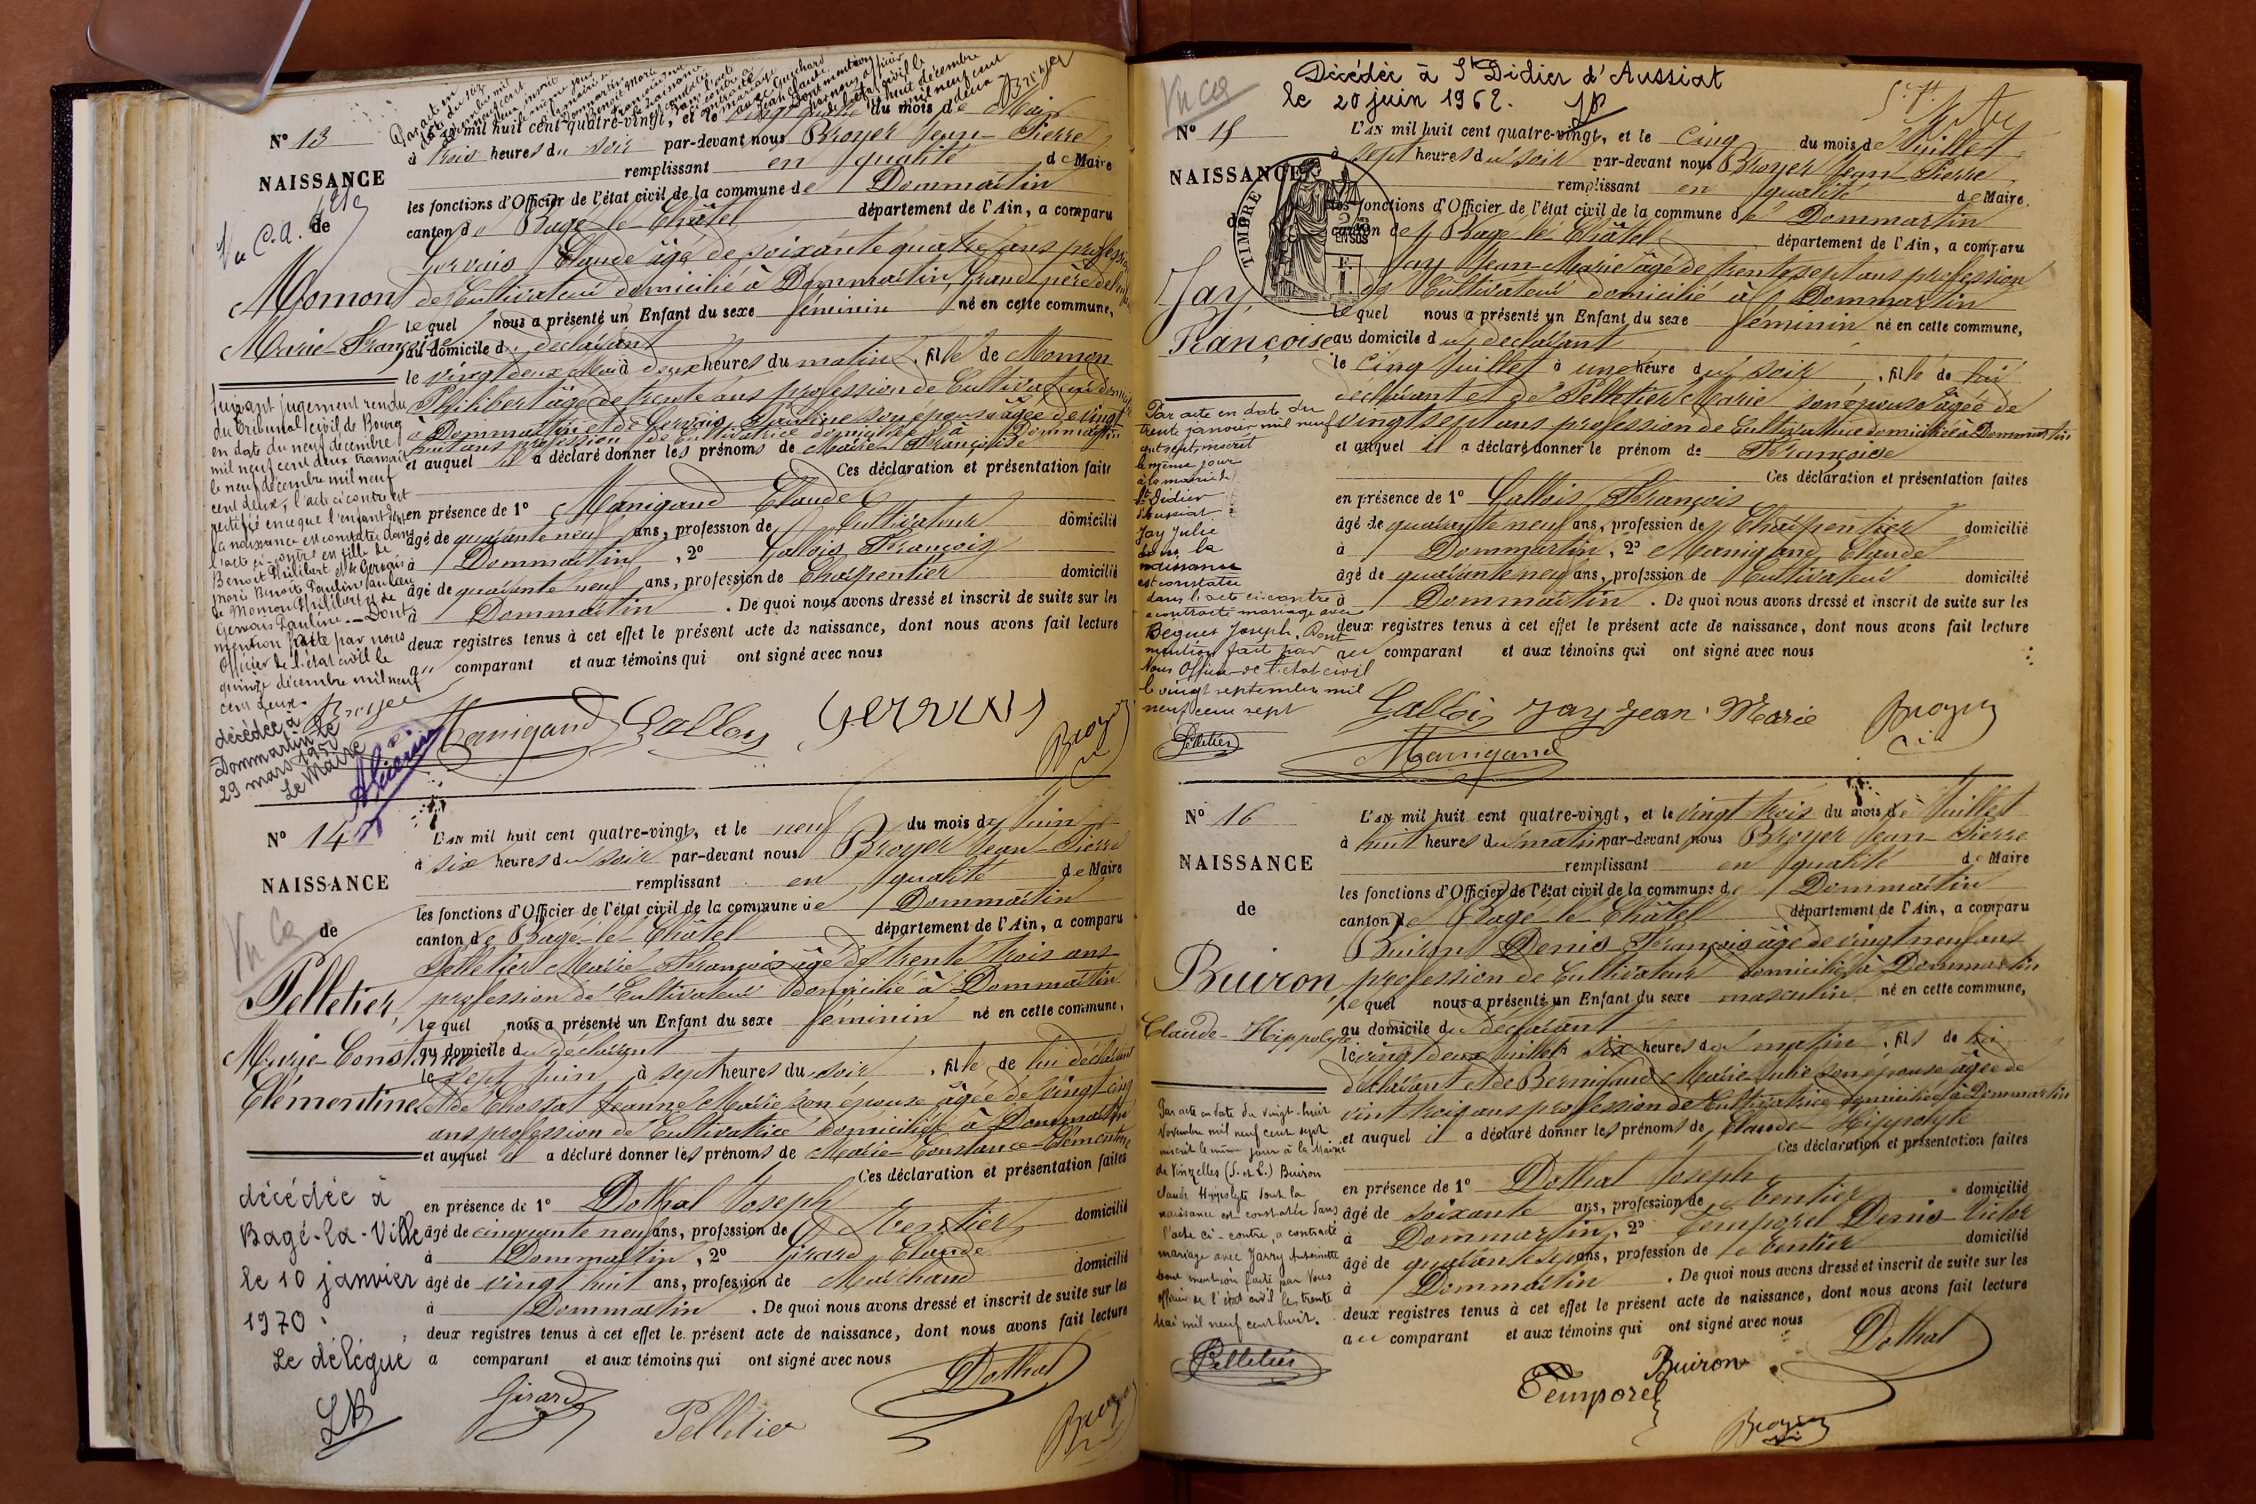 N° 13
NAISSANCE
de
Vu C.A.
Momon
Marie-Françoise
mil huit cent quatre-vingt, et le vingt quatre du mois de Mai
à trois heures du soir par-devant nous Broyer Jean-Pierre
remplissant en qualité de Maire
les fonctions d'Officier de l'état civil de la commune de Dommartin
canton de Bagé-le-Châtel département de l'Ain, a comparu
Gervais Claude âgé de soixante quatre ans profession
de Cultivateur domicilié à Dommartin, Grand père de
lequel nous a présenté un Enfant du sexe féminin né en cette commune,
au domicile du déclarant
le vingt deux Mai à deux heures du matin, fille de Momon
Philibert âgé de trente ans profession de Cultivateur
à Dommartin et de Gervais Pauline son épouse âgée de vingt
huit ans profession de cultivatrice domiciliée à Dommartin
et auquel il a déclaré donner les prénoms de Marie-Françoise
Ces déclaration et présentation faites
en présence de 1° Manigand Claude
âgé de quarante neuf ans, profession de Cultivateur domicilié
à Dommartin, 2° Gallois François
âgé de quarante neuf ans, profession de Charpentier domicilié
à Dommartin. De quoi nous avons dressé et inscrit de suite sur les
deux registres tenus à cet effet le présent acte de naissance, dont nous avons fait lecture
au comparant et aux témoins qui ont signé avec nous
Suivant jugement rendu
du Tribunal civil de Bourg
en date du neuf décembre
mil neuf cent deux transcrit
le neuf décembre mil neuf
cent deux, l'acte ci contre est
rectifié en ce que l'enfant dont
la naissance est constatée dans
l'acte ci-contre est fille de
Benoit Philibert et de Gervais
Marie Benoit Pauline au lieu
de Momon Philibert et de
Gervais Pauline. Dont
mention faite par nous
Officier de l'état civil le
quinze décembre mil neuf
cent deux.
Broyer
décédée à
Dommartin le
29 mars
Le Maire
Manigand Gallois Gervais Broyer
N° 14
NAISSANCE
de
Vu Ca
Pelletier,
Marie-Constance
Clémentine
L'AN mil huit cent quatre-vingt, et le neuf du mois de Juin
à six heures du soir par-devant nous Broyer Jean-Pierre
remplissant en qualité de Maire
les fonctions d'Officier de l'état civil de la commune de Dommartin
canton de Bagé-le-Châtel département de l'Ain, a comparu
Pelletier Marie-François âgé de trente trois ans
profession de Cultivateur domicilié à Dommartin
lequel nous a présenté un Enfant du sexe féminin né en cette commune,
au domicile du déclarant
le sept Juin à sept heures du soir, fille de lui déclarant
et de Chossat Jeanne Marie son épouse âgée de vingt cinq
ans profession de Cultivatrice domiciliée à Dommartin
et auquel il a déclaré donner les prénoms de Marie-Constance-Clémentine
Ces déclaration et présentation faites
en présence de 1° Dothal Joseph
âgé de cinquante neuf ans, profession de Rentier domicilié
à Dommartin, 2° Girard Claude
âgé de vingt huit ans, profession de Marchand domicilié
à Dommartin. De quoi nous avons dressé et inscrit de suite sur les
deux registres tenus à cet effet le présent acte de naissance, dont nous avons fait lecture
a comparant et aux témoins qui ont signé avec nous
décédée à
Bagé-la-Ville
le 10 janvier
1970.
Le délégué
Girard Pelletier Dothal Broyer
Décédée à St Didier d'Aussiat
le 20 juin 1962.
Vu Ca
N° 15
NAISSANCE
de
TIMBRE
Jay
Françoise
L'AN mil huit cent quatre-vingt, et le cinq du mois de Juillet
à sept heures du soir par-devant nous Broyer Jean-Pierre
remplissant en qualité de Maire
les fonctions d'Officier de l'état civil de la commune de Dommartin
canton de Bagé-le-Châtel département de l'Ain, a comparu
Jay Jean-Marie âgé de trente sept ans profession
de Cultivateur domicilié à Dommartin
lequel nous a présenté un Enfant du sexe féminin né en cette commune,
au domicile du déclarant
le Cinq Juillet à une heure du soir, fille de lui
déclarant et de Pelletier Marie son épouse âgée de
vingt sept ans profession de Cultivatrice domiciliée à Dommartin
et auquel il a déclaré donner le prénom de Françoise
Ces déclaration et présentation faites
en présence de 1° Gallois François
âgé de quarante neuf ans, profession de Charpentier domicilié
à Dommartin, 2° Manigand Claude
âgé de quarante neuf ans, profession de Cultivateur domicilié
à Dommartin. De quoi nous avons dressé et inscrit de suite sur les
deux registres tenus à cet effet le présent acte de naissance, dont nous avons fait lecture
au comparant et aux témoins qui ont signé avec nous
Par acte en date du
trente janvier mil neuf
cent sept, inscrit
le même jour
à la mairie de
St Didier
d'Aussiat
Jay Julie
dont la
naissance
est constatée
dans l'acte ci-contre
a contracté mariage avec
Berguer Joseph. Dont
mention faite par
Nous Officier de l'état civil
le vingt septembre mil
neuf cent sept
Pelletier
Gallois Jay Jean Marie Broyer
Manigand
N° 16
NAISSANCE
de
Buiron
Claude-Hippolyte
L'AN mil huit cent quatre-vingt, et le vingt trois du mois de Juillet
à huit heures du matin par-devant nous Broyer Jean-Pierre
remplissant en qualité de Maire
les fonctions d'Officier de l'état civil de la commune de Dommartin
canton de Bagé-le-Châtel département de l'Ain, a comparu
Buiron Denis François âgé de vingt neuf ans
profession de Cultivateur domicilié à Dommartin
lequel nous a présenté un Enfant du sexe masculin né en cette commune,
au domicile du déclarant
le vingt deux Juillet à six heures du matin, fils de lui
déclarant et de Bernigaud Marie-Julie son épouse âgée de
vingt trois ans profession de Cultivatrice domiciliée à Dommartin
et auquel il a déclaré donner les prénoms de Claude-Hippolyte
Ces déclaration et présentation faites
en présence de 1° Dothal Joseph
âgé de soixante ans, profession de Rentier domicilié
à Dommartin, 2° Temporel Denis-Victor
âgé de quarante sept ans, profession de Rentier domicilié
à Dommartin. De quoi nous avons dressé et inscrit de suite sur les
deux registres tenus à cet effet le présent acte de naissance, dont nous avons fait lecture
au comparant et aux témoins qui ont signé avec nous
Par acte en date du vingt-huit
Novembre mil neuf cent sept
inscrit le même jour à la Mairie
de Vinzelles (S.-et-L.) Buiron
Claude Hippolyte dont la
naissance est constatée dans
l'acte ci-contre, a contracté
mariage avec Jarry Antoinette
Dont mention faite par Nous
officier de l'état civil les trente
Mai mil neuf cent huit.
Pelletier
Temporel Buiron Dothal
Broyer